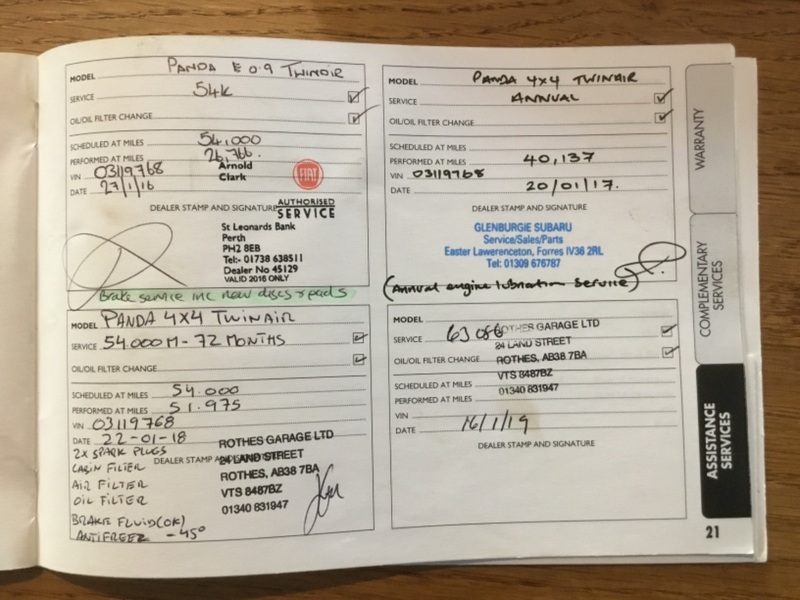 MODEL PANDA E 0.9 TWINAIR
SERVICE 54K
OIL/OIL FILTER CHANGE
SCHEDULED AT MILES 54,000
PERFORMED AT MILES 26,766.
VIN 03119768
DATE 27/1/16
Arnold
Clark
FIAT
AUTHORISED
SERVICE
DEALER STAMP AND SIGNATURE
St Leonards Bank
Perth
PH2 8EB
Tel:- 01738 638511
Dealer No 45129
VALID 2016 ONLY
Brake service inc new discs & pads
MODEL PANDA 4x4 TWINAIR
SERVICE ANNUAL
OIL/OIL FILTER CHANGE
SCHEDULED AT MILES
PERFORMED AT MILES 40,137
VIN 03119768
DATE 20/01/17.
DEALER STAMP AND SIGNATURE
GLENBURGIE SUBARU
Service/Sales/Parts
Easter Lawerenceton, Forres IV36 2RL
Tel: 01309 676787
(Annual engine lubrication service)
MODEL PANDA 4X4 TWINAIR
SERVICE 54.000M - 72 MONTHS
OIL/OIL FILTER CHANGE
SCHEDULED AT MILES 54.000
PERFORMED AT MILES 51.975
VIN 03119768
DATE 22-01-18
2X SPARK PLUGS
DEALER STAMP AND SIGNATURE
CABIN FILTER
AIR FILTER
OIL FILTER
BRAKE FLUID (OK)
ANTIFREEZ -45°
ROTHES GARAGE LTD
24 LAND STREET
ROTHES, AB38 7BA
VTS 8487BZ
01340 831947
MODEL
SERVICE 63
OIL/OIL FILTER CHANGE
SCHEDULED AT MILES
PERFORMED AT MILES
VIN
DATE 16/1/19
DEALER STAMP AND SIGNATURE
ROTHES GARAGE LTD
24 LAND STREET
ROTHES, AB38 7BA
VTS 8487BZ
01340 831947
WARRANTY
COMPLEMENTARY
SERVICES
ASSISTANCE
SERVICES
21